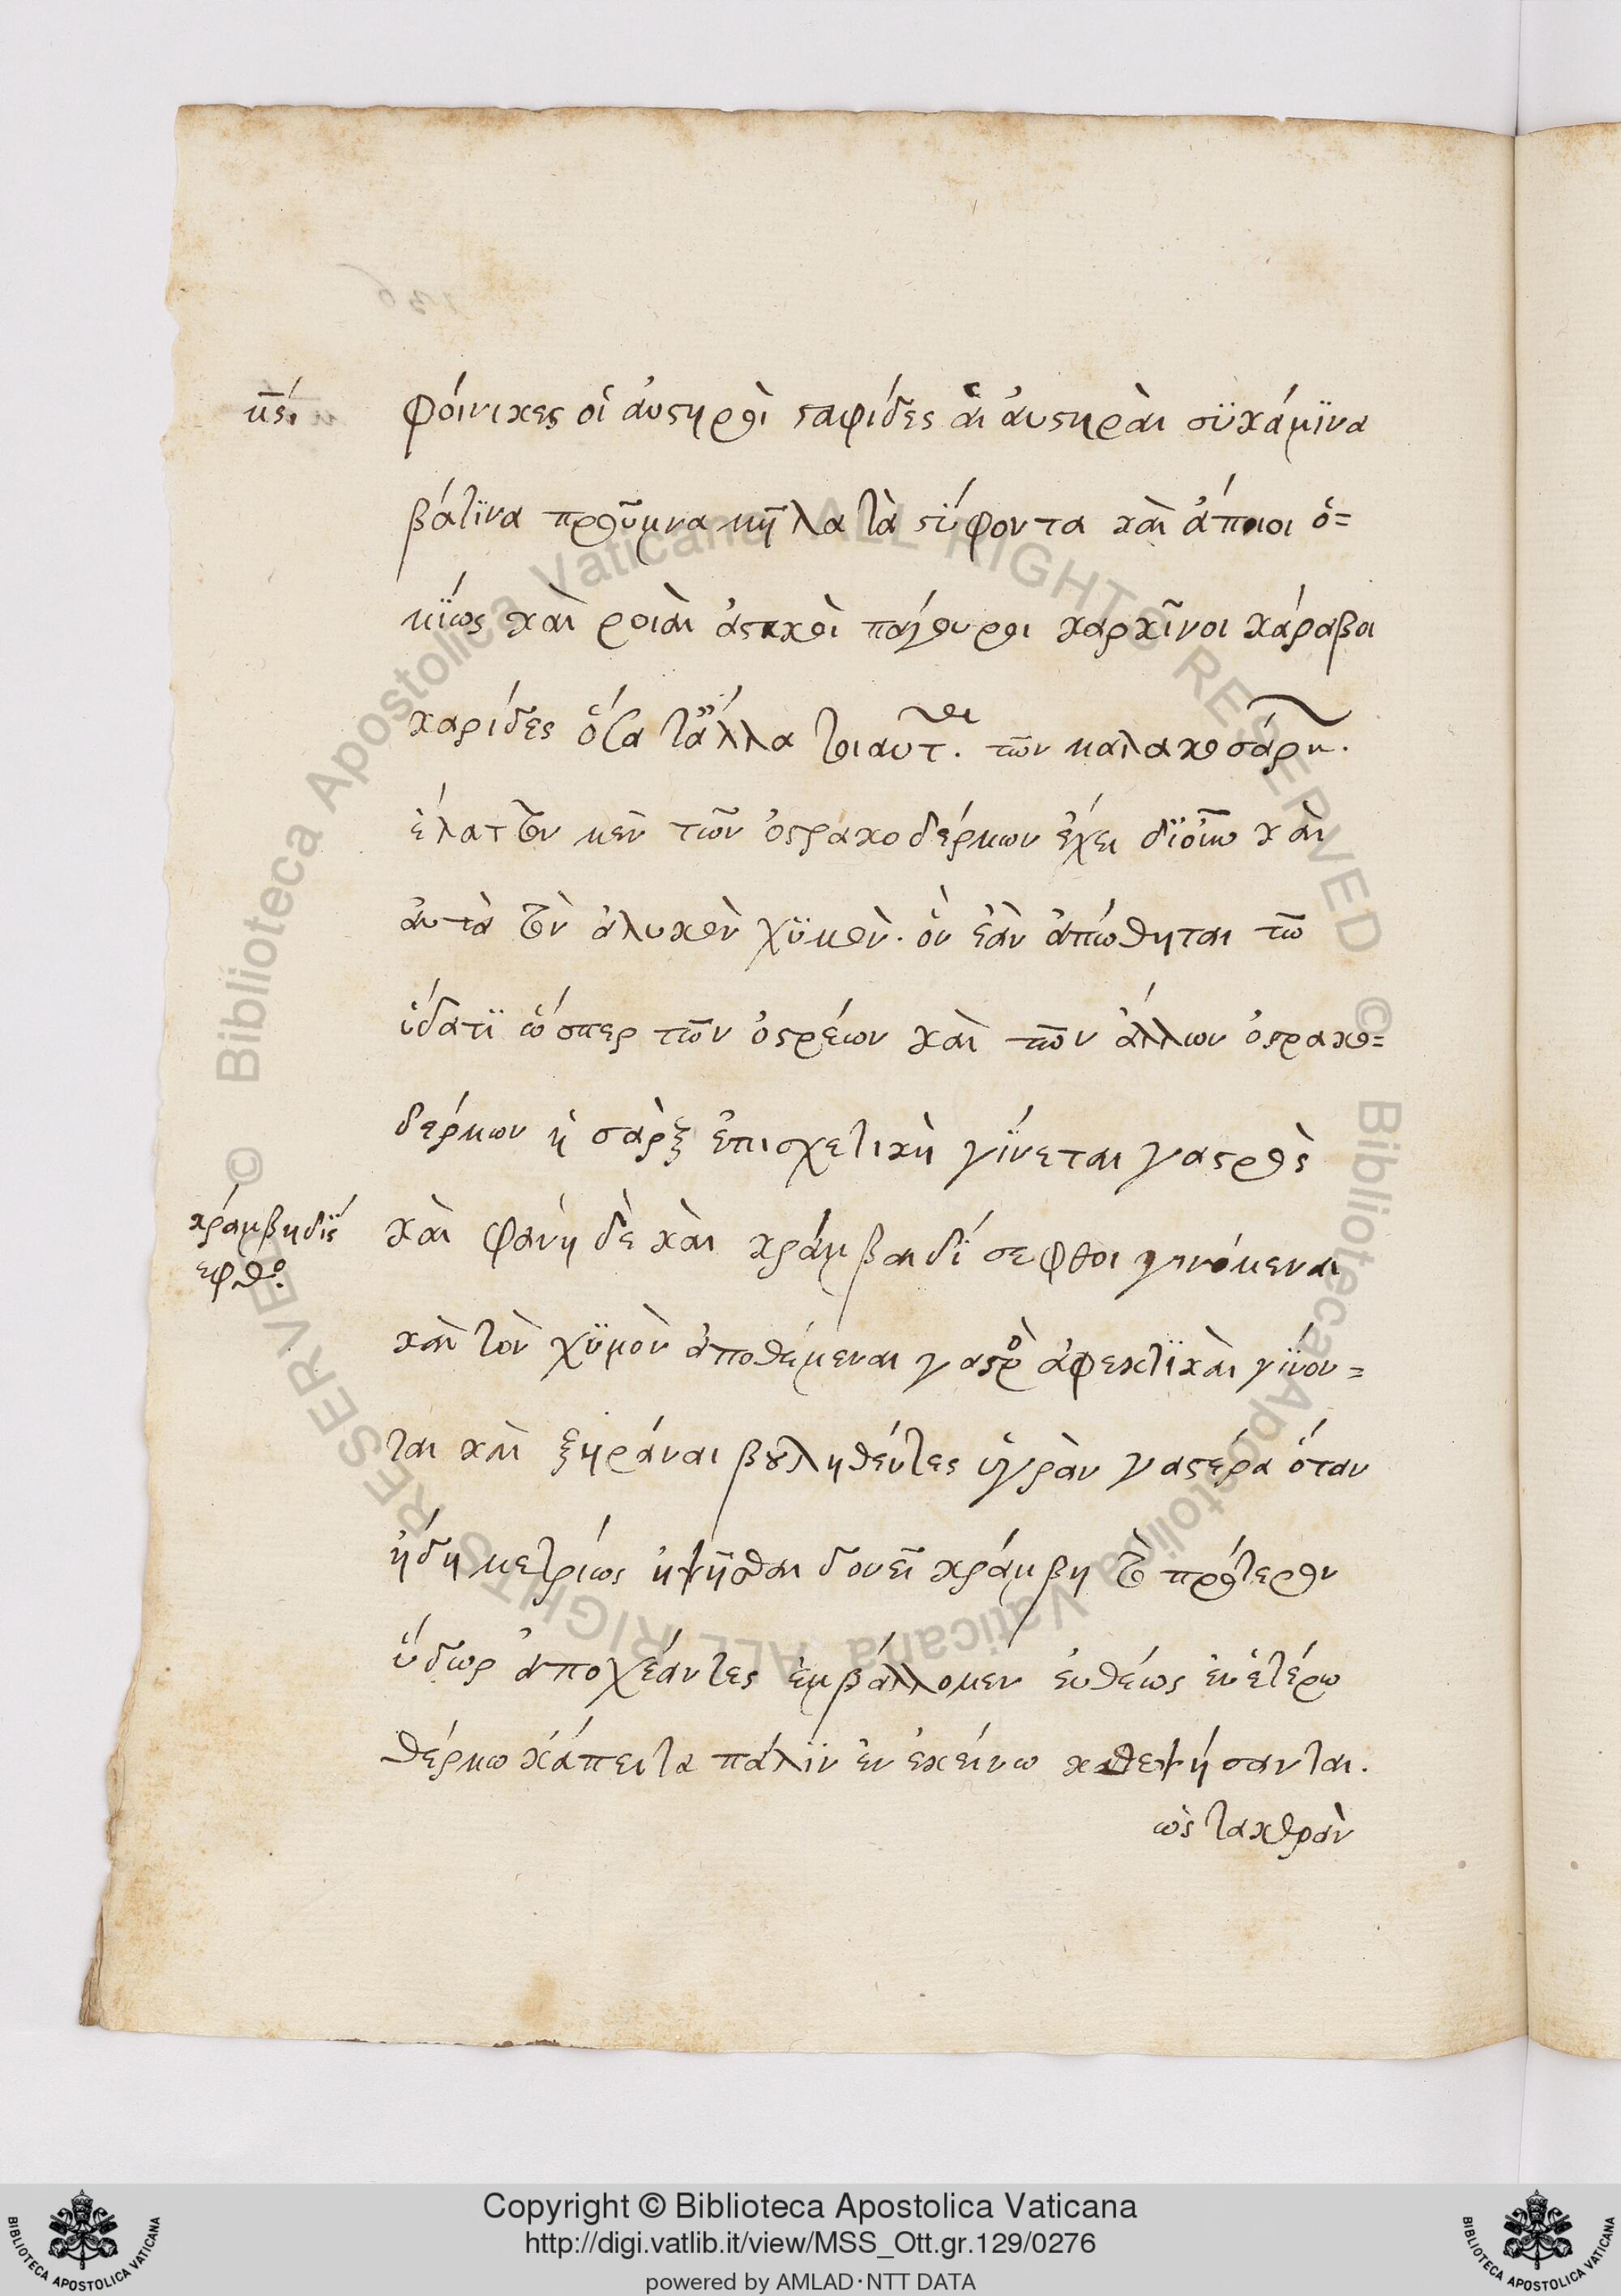 κεί
φοίνικες οἱ ἀυστηροὶ σταφίδες ἁι ἀυστηρὰι σϋκάμϊνα
βάτϊνα προῦμνα μῆλα τὰ στύφοντα κὰι ἄπιοι ὁ=
μΐως κὰι ροιὰι ἀστακοὶ πάγουροι καρκῖνοι κάραβοι
καρίδες ὅσα τἆλλα τοιαῦτ. τῶν μαλακοσάρκ.
ἐλαττον μεν τῶν ὀστρακοδέρμων ἔχει δϊόμω κὰι
ἀυτὰ τὸν ἁλυκὸν χϋμὸν. ὃν ἐὰν ἀπώθηται τῶ
ὑδατϊ ὥσπερ τῶν ὀστρέων κὰι τῶν ἄλλων ὀστρακο=
δέρμων ἡ σὰρξ ἐπισχετικὴ γΐνεται γαστρὸς
κράμβη δΐς
εφθο.
κὰι φανὴ δὲ κὰι κράμβαι δΐ σεφθοι γινόμεναι
κὰι τὸν χϋμὸν ἀποθέμεναι γαστρὸ ἀφεκτϊκὰι γΐνον=
ται κὰι ξηράναι βουληθέντες ὑγρὰν γαστέρα ὅταν
ἤδη μετρίως ἡψῆσθαι δονεῖ κράμβη τὸ πρότερον
ὕδωρ ἀποχέαντες ἐμβάλλομεν ἐυθέως ἐν ἑτέρω
θέρμω κάπειτα πάλϊν ἐν ἐκείνω καθεψήσανται.
ὡς τακερὰν
Copyright © Biblioteca Apostolica Vaticana
http://digi.vatlib.it/view/MSS_Ott.gr.129/0276
powered by AMLAD·NTT DATA